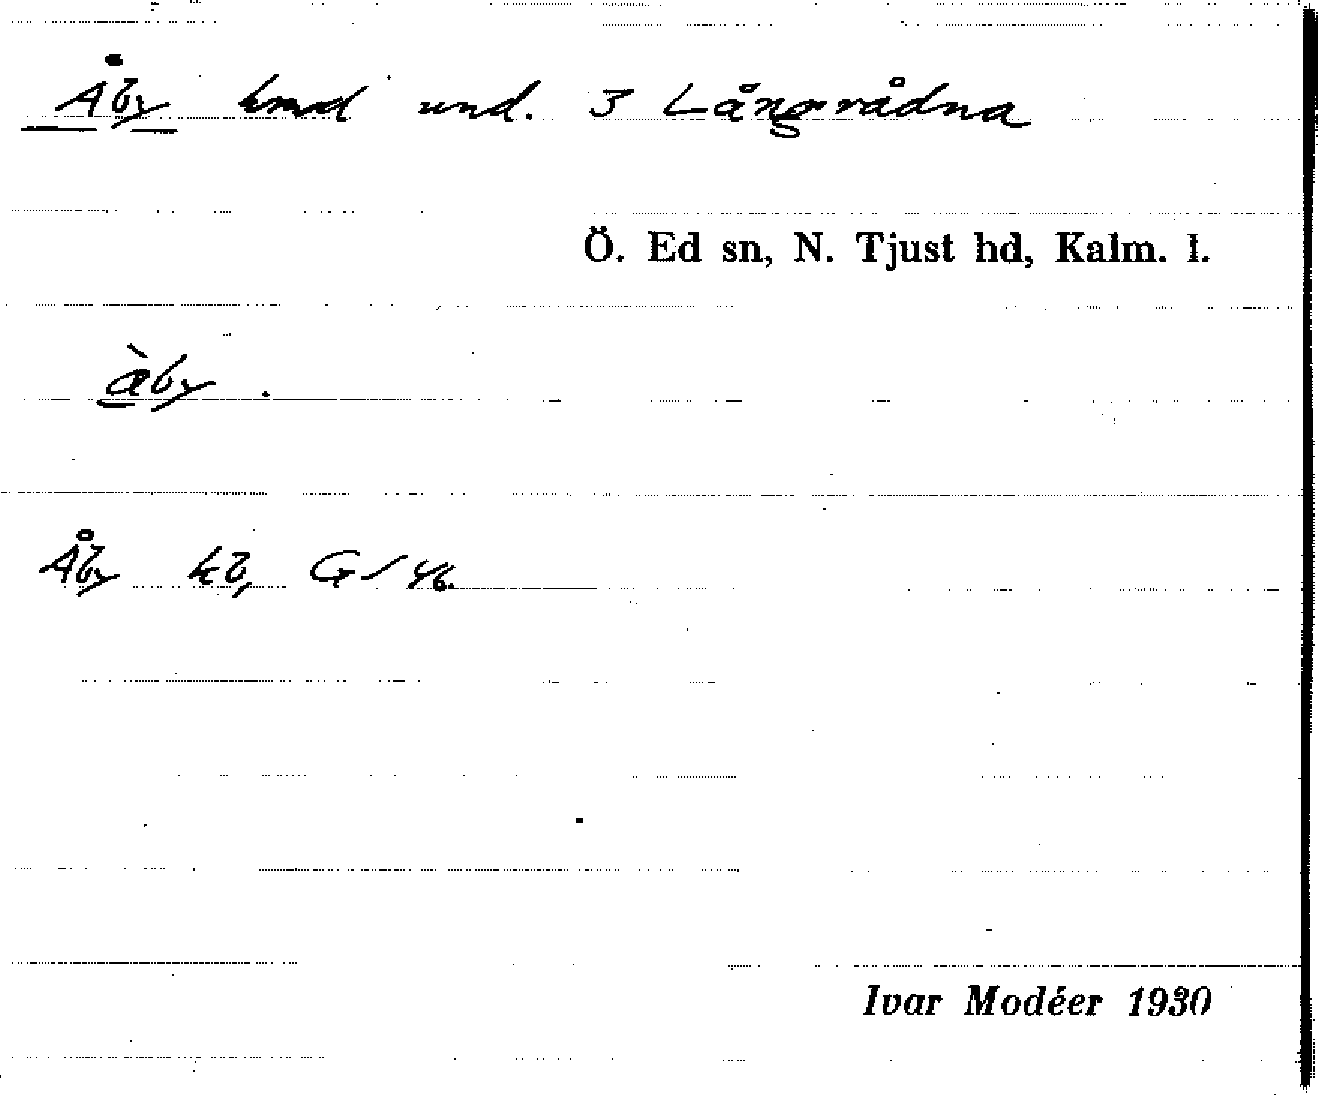 Åby hmd und. 3 Långrådna
Ö. Ed sn, N. Tjust hd, Kalm. l.
àby.
Åby kb, GSV6.
Ivar Modéer 1930